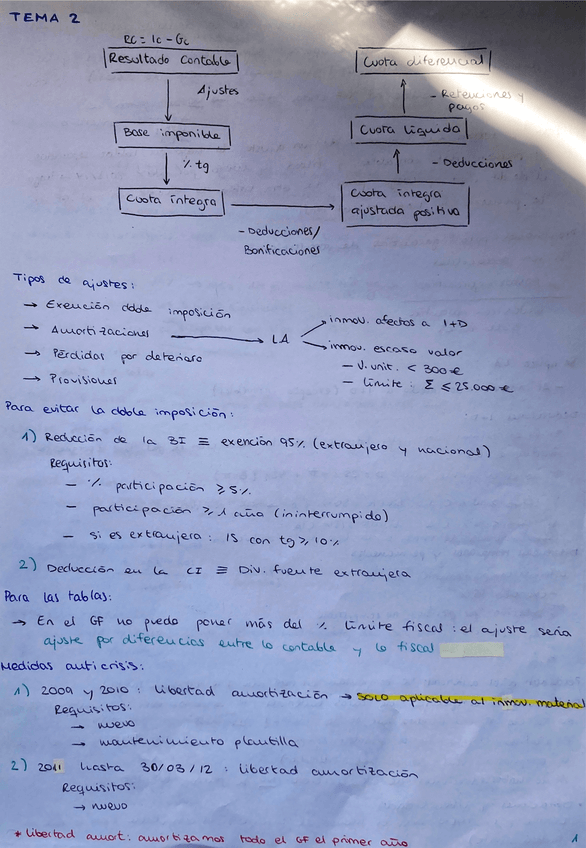 TEMA 2
RC = Ic - Gc
Resultado contable
Ajustes
Base imponible
% tg
Cuota íntegra
- Deducciones/
Bonificaciones
Cuota íntegra
ajustada positiva
- Deducciones
Cuota líquida
- Retenciones y
pagos
Cuota diferencial
Tipos de ajustes:
→ Exención doble imposición
→ Amortizaciones → LA
→ inmov. afectos a I+D
→ inmov. escaso valor
- V. unit. < 300 €
- Límite: Σ ≤ 25.000 €
→ Pérdidas por deterioro
→ Provisiones
Para evitar la doble imposición:
1) Reducción de la BI ≡ exención 95% (extranjero y nacional)
Requisitos:
- % participación ≥ 5%
- participación ≥ 1 año (ininterrumpido)
- si es extranjera: IS con tg ≥ 10%
2) Deducción en la CI ≡ Div. fuente extranjera
Para las tablas:
→ En el GF no puedo poner más del % límite fiscal: el ajuste sería
ajuste por diferencias entre lo contable y lo fiscal
Medidas anticrisis:
1) 2009 y 2010: libertad amortización → solo aplicable al inmov. material
Requisitos:
→ nuevo
→ mantenimiento plantilla
2) 2011 hasta 30/03/12: libertad amortización
Requisitos:
→ nuevo
* Libertad amort: amortizamos todo el GF el primer año
1